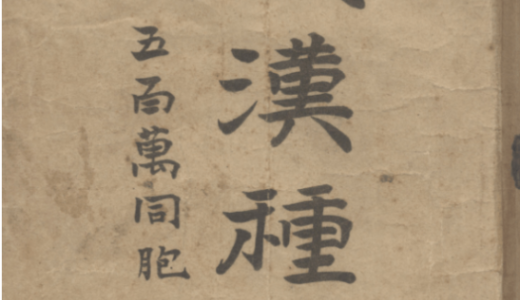 漢種
五百萬同胞